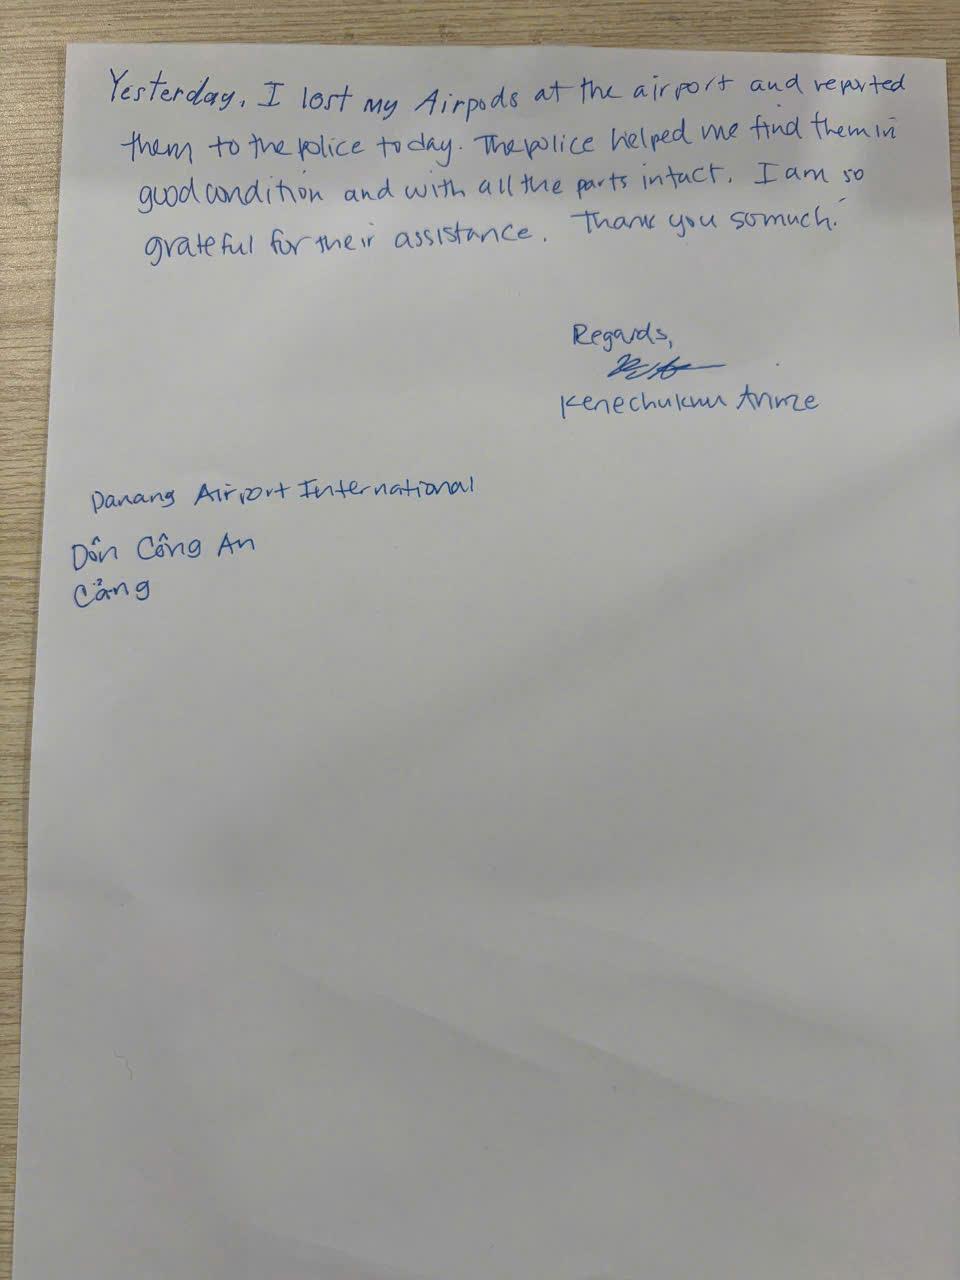 Yesterday, I lost my Airpods at the airport and reported
them to the police today. The police helped me find them in
good condition and with all the parts intact. I am so
grateful for their assistance. Thank you so much.
Regards,
Kenechukwu
Danang Airport International
Dôn Công An
Cảng